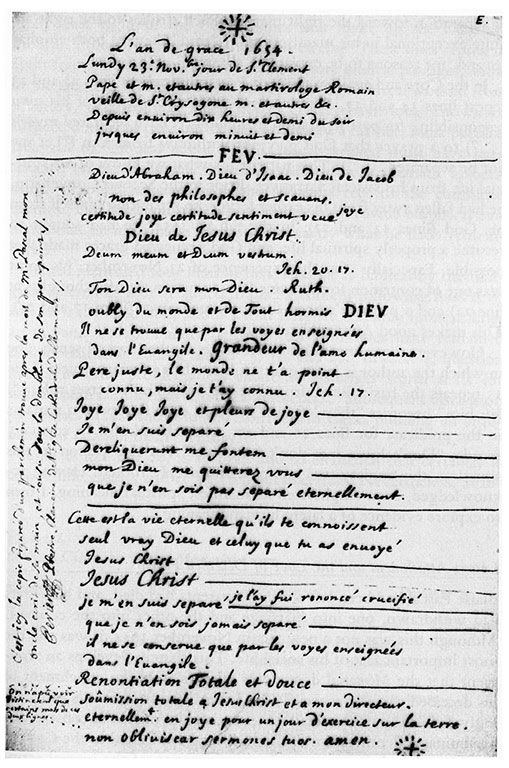 E.
L'an de grace 1654.
Lundy 23.e Nov.bre jour de S.t Clement
Pape et m. et autres au martirologe Romain
veille de S.t Crysogone m. et autres &c.
Depuis environ dix heures et demi du soir
jusques environ minuit et demi
FEV.
Dieu d'Abraham. Dieu d'Isaac. Dieu de Jacob
non des philosophes et scavans.
certitude joye certitude sentiment veue joye
Dieu de Jesus Christ.
Deum meum et Deum vestrum.
Jeh. 20. 17.
Ton Dieu sera mon Dieu. Ruth.
oubly du monde et de Tout hormis DIEV
Il ne se trouve que par les voyes enseignées
dans l'Euangile. Grandeur de l'ame humaine.
Pere juste, le monde ne t'a point
connu, mais je t'ay connu. Jeh. 17.
Joye Joye Joye et pleurs de joye
Je m'en suis separé
Dereliquerunt me fontem
mon Dieu me quitterez vous
que je n'en sois pas separé eternellement.
Cette est la vie eternelle qu'ils te connoissent
seul vray Dieu et celuy que tu as envoyé
Jesus Christ
Jesus Christ
je m'en suis separé je l'ay fui renoncé crucifié
que je n'en sois jamais separé
il ne se conserve que par les voyes enseignées
dans l'Euangile.
Renontiation Totale et douce
soûmission totale a Jesus Christ et a mon directeur.
eternellem.t en joye pour un jour d'exercice sur la terre.
non obliviscar sermones tuos. amen.
c'est icy la copie figurée d'un parchemin trouvé apres la mort de M.r Pascal mon
oncle ecrit de sa main, et cousu sous la doublure de son pourpoint
On n'a pû voir
distinctem.t que
certains mots de ces
deux lignes.